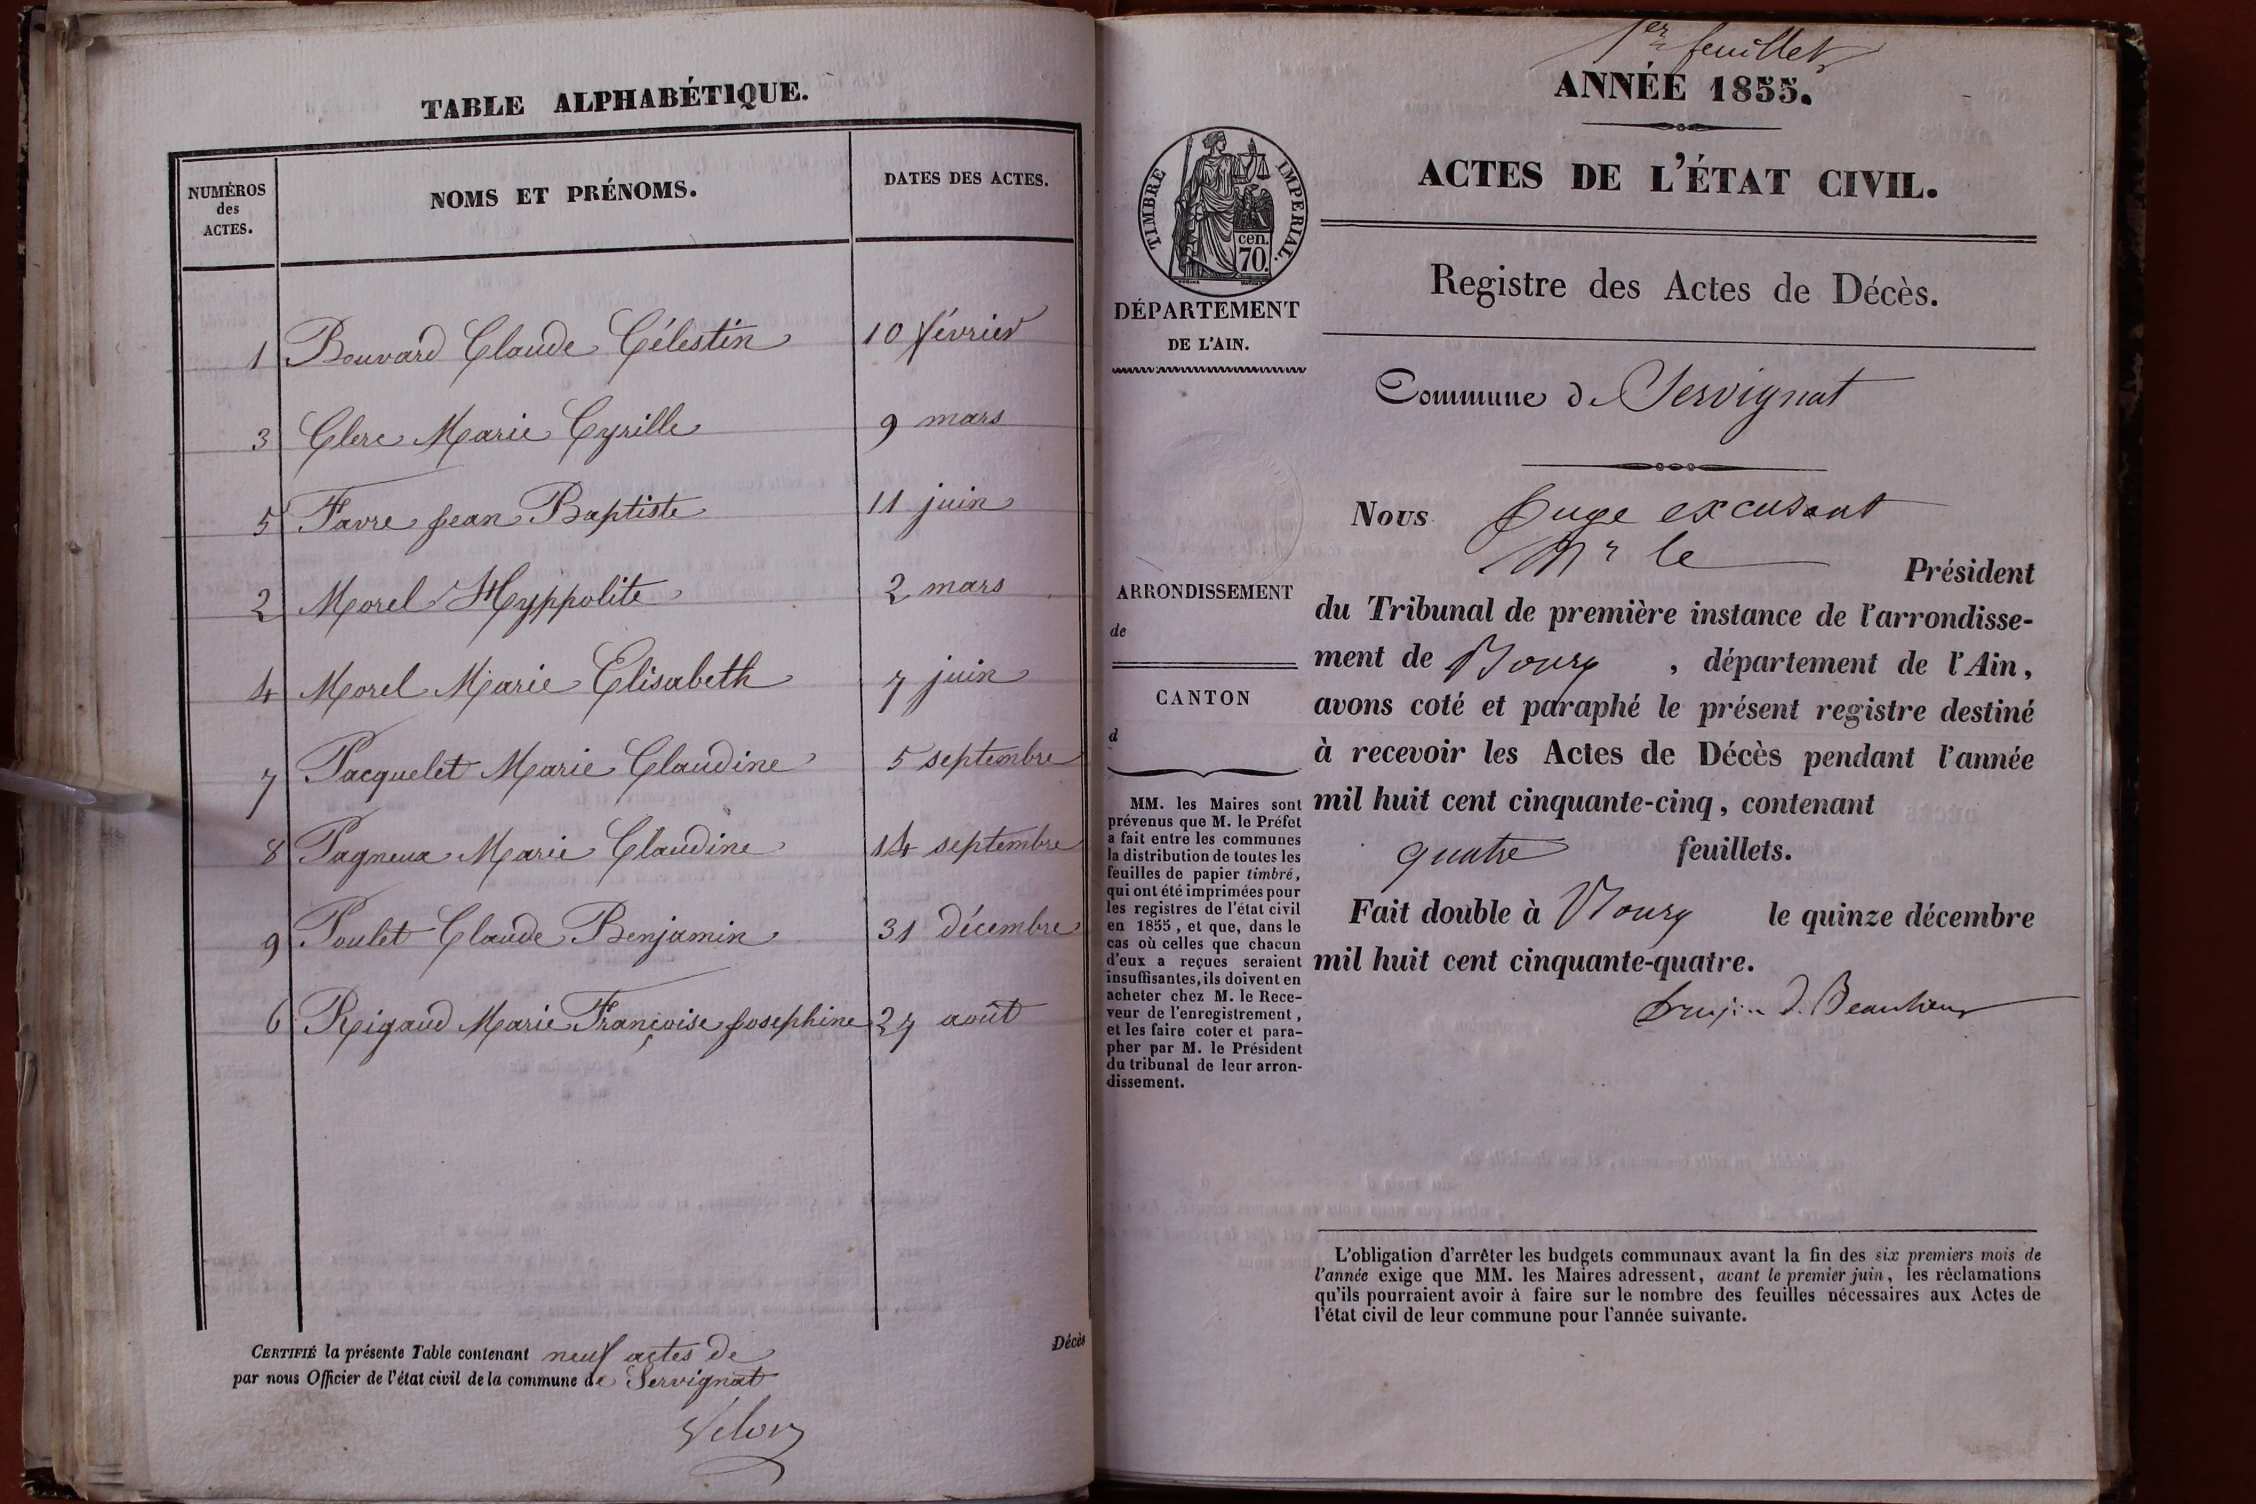 TABLE ALPHABÉTIQUE.
NUMÉROS
des
ACTES.
NOMS ET PRÉNOMS.
DATES DES ACTES.
1 Bouvard Claude Célestin 10 février
3 Clerc Marie Cyrille 9 mars
5 Favre Jean Baptiste 11 juin
2 Morel Hyppolite 2 mars
4 Morel Marie Elisabeth 7 juin
7 Pacquelet Marie Claudine 5 septembre
8 Pagneux Marie Claudine 14 septembre
9 Poulet Claude Benjamin 31 décembre
6 Rigaud Marie Françoise Josephine 27 août
CERTIFIÉ la présente Table contenant neuf actes de Décès
par nous Officier de l'état civil de la commune de Servignat
1er feuillet
ANNÉE 1855.
ACTES DE L'ÉTAT CIVIL.
TIMBRE IMPERIAL.
cen.
70.
DÉPARTEMENT
DE L'AIN.
Registre des Actes de Décès.
Commune de Servignat
ARRONDISSEMENT
de
CANTON
d
MM. les Maires sont
prévenus que M. le Préfet
a fait entre les communes
la distribution de toutes les
feuilles de papier timbré,
qui ont été imprimées pour
les registres de l'état civil
en 1855, et que, dans le
cas où celles que chacun
d'eux a reçues seraient
insuffisantes, ils doivent en
acheter chez M. le Rece-
veur de l'enregistrement,
et les faire coter et para-
pher par M. le Président
du tribunal de leur arron-
dissement.
Nous Juge excusant
Mr le Président
du Tribunal de première instance de l'arrondisse-
ment de Bourg, département de l'Ain,
avons coté et paraphé le présent registre destiné
à recevoir les Actes de Décès pendant l'année
mil huit cent cinquante-cinq, contenant
quatre feuillets.
Fait double à Bourg le quinze décembre
mil huit cent cinquante-quatre.
d. Beaulieu
L'obligation d'arrêter les budgets communaux avant la fin des six premiers mois de
l'année exige que MM. les Maires adressent, avant le premier juin, les réclamations
qu'ils pourraient avoir à faire sur le nombre des feuilles nécessaires aux Actes de
l'état civil de leur commune pour l'année suivante.